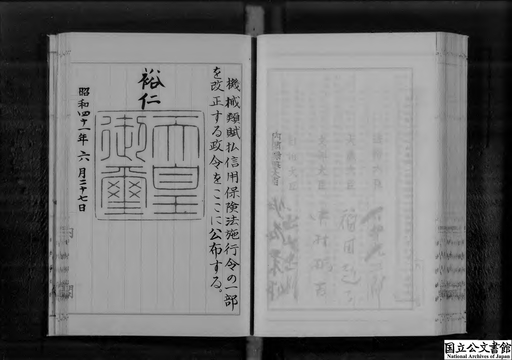 機械類賦払信用保険法施行令の一部
を改正する政令をここに公布する。
裕仁
天皇
御璽
昭和四十一年六月二十七日
国立公文書館
National Archives of Japan